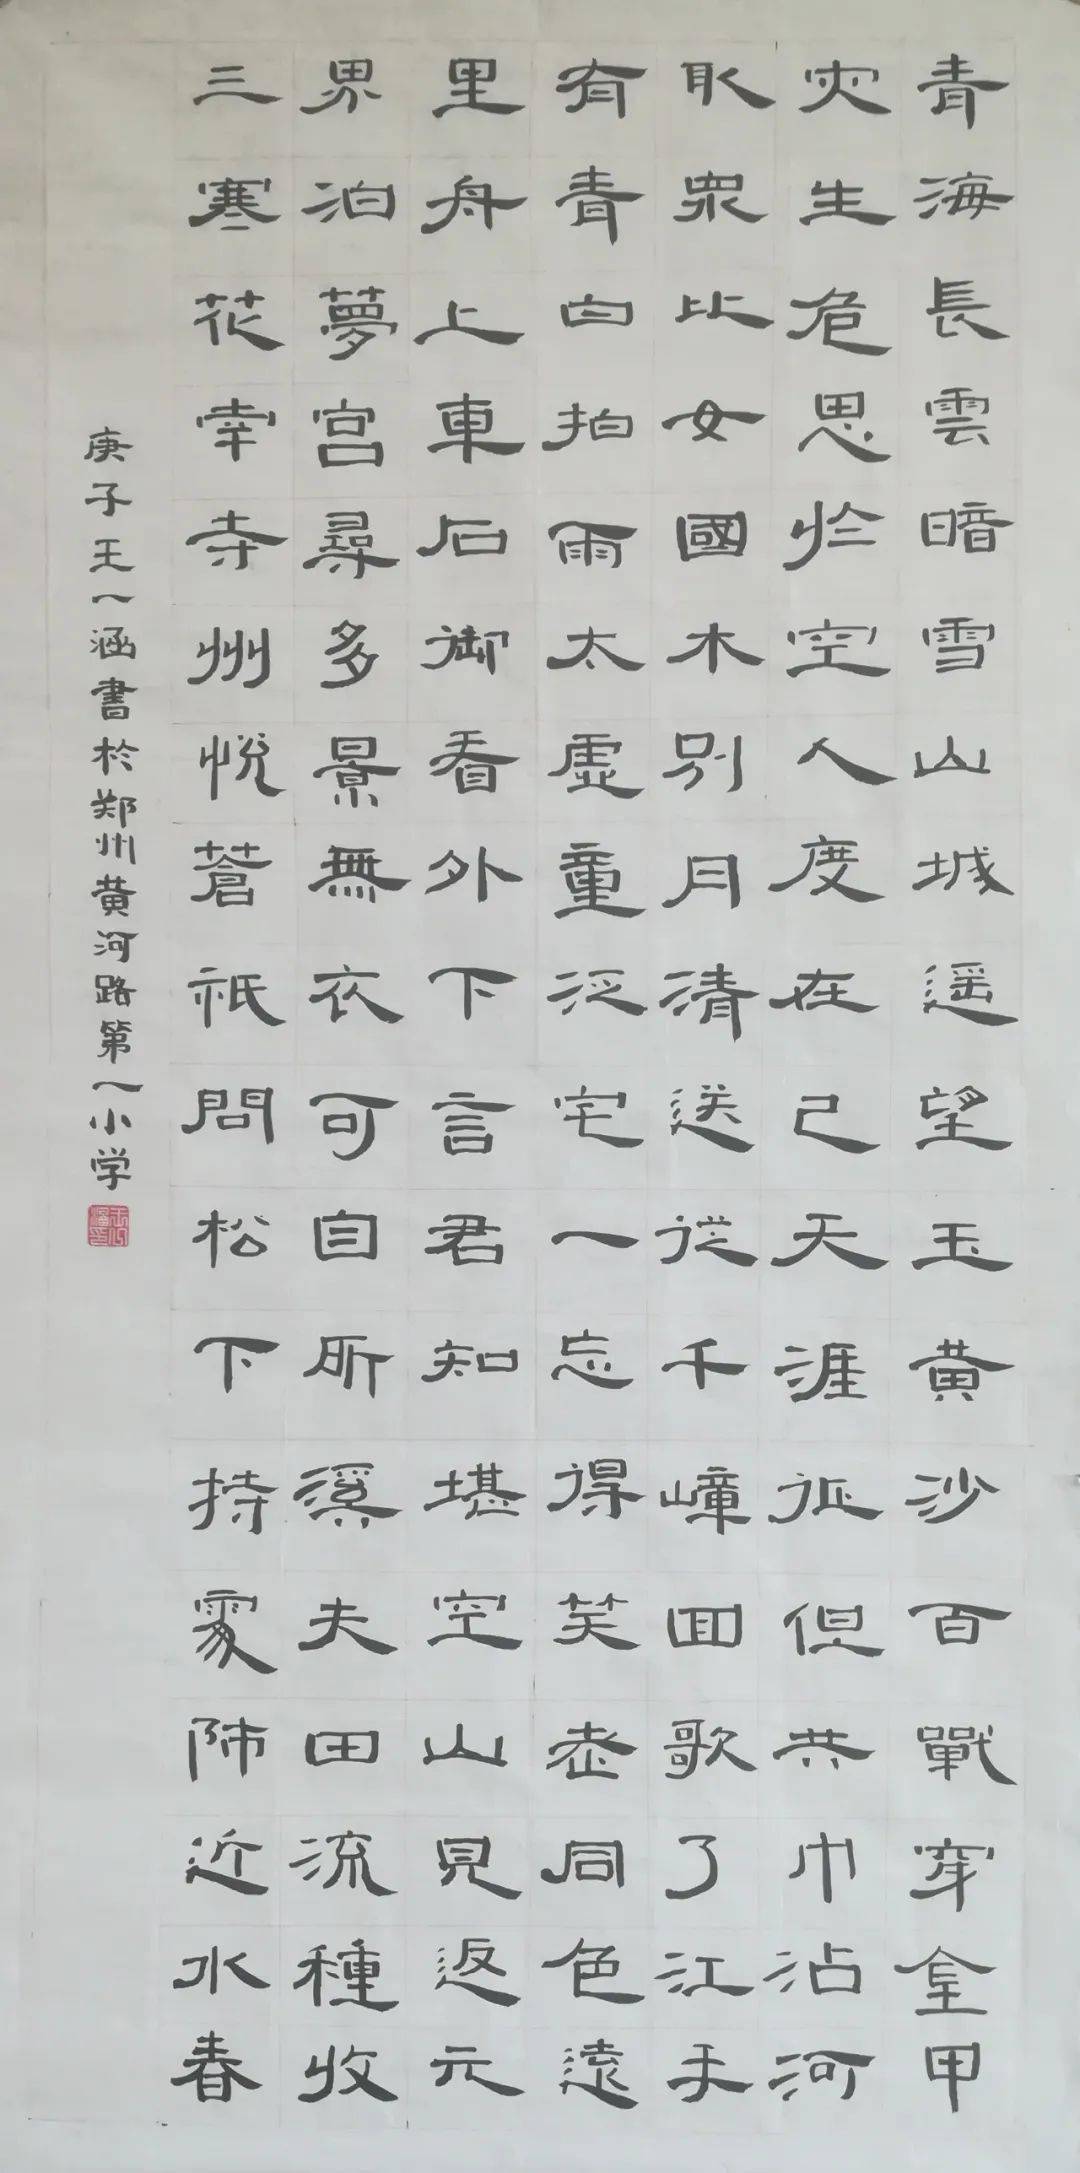 青海長雲暗雪山城遥望玉黄沙百戰穿金甲
灾生危思於空人度在己天涯征但共巾沾河
取衆比女國木别月清送從千嶂回歌了江手
有青白拍雨太虚重泛宅一忘得笑老同色遠
里舟上東石御看外下言君知堪空山見返元
界泊夢宫尋多景無衣可自所溪夫田流種收
三寒花幸寺州悦蒼祇問松下持家師近水春
庚子王一涵書於郑州黄河路第一小学